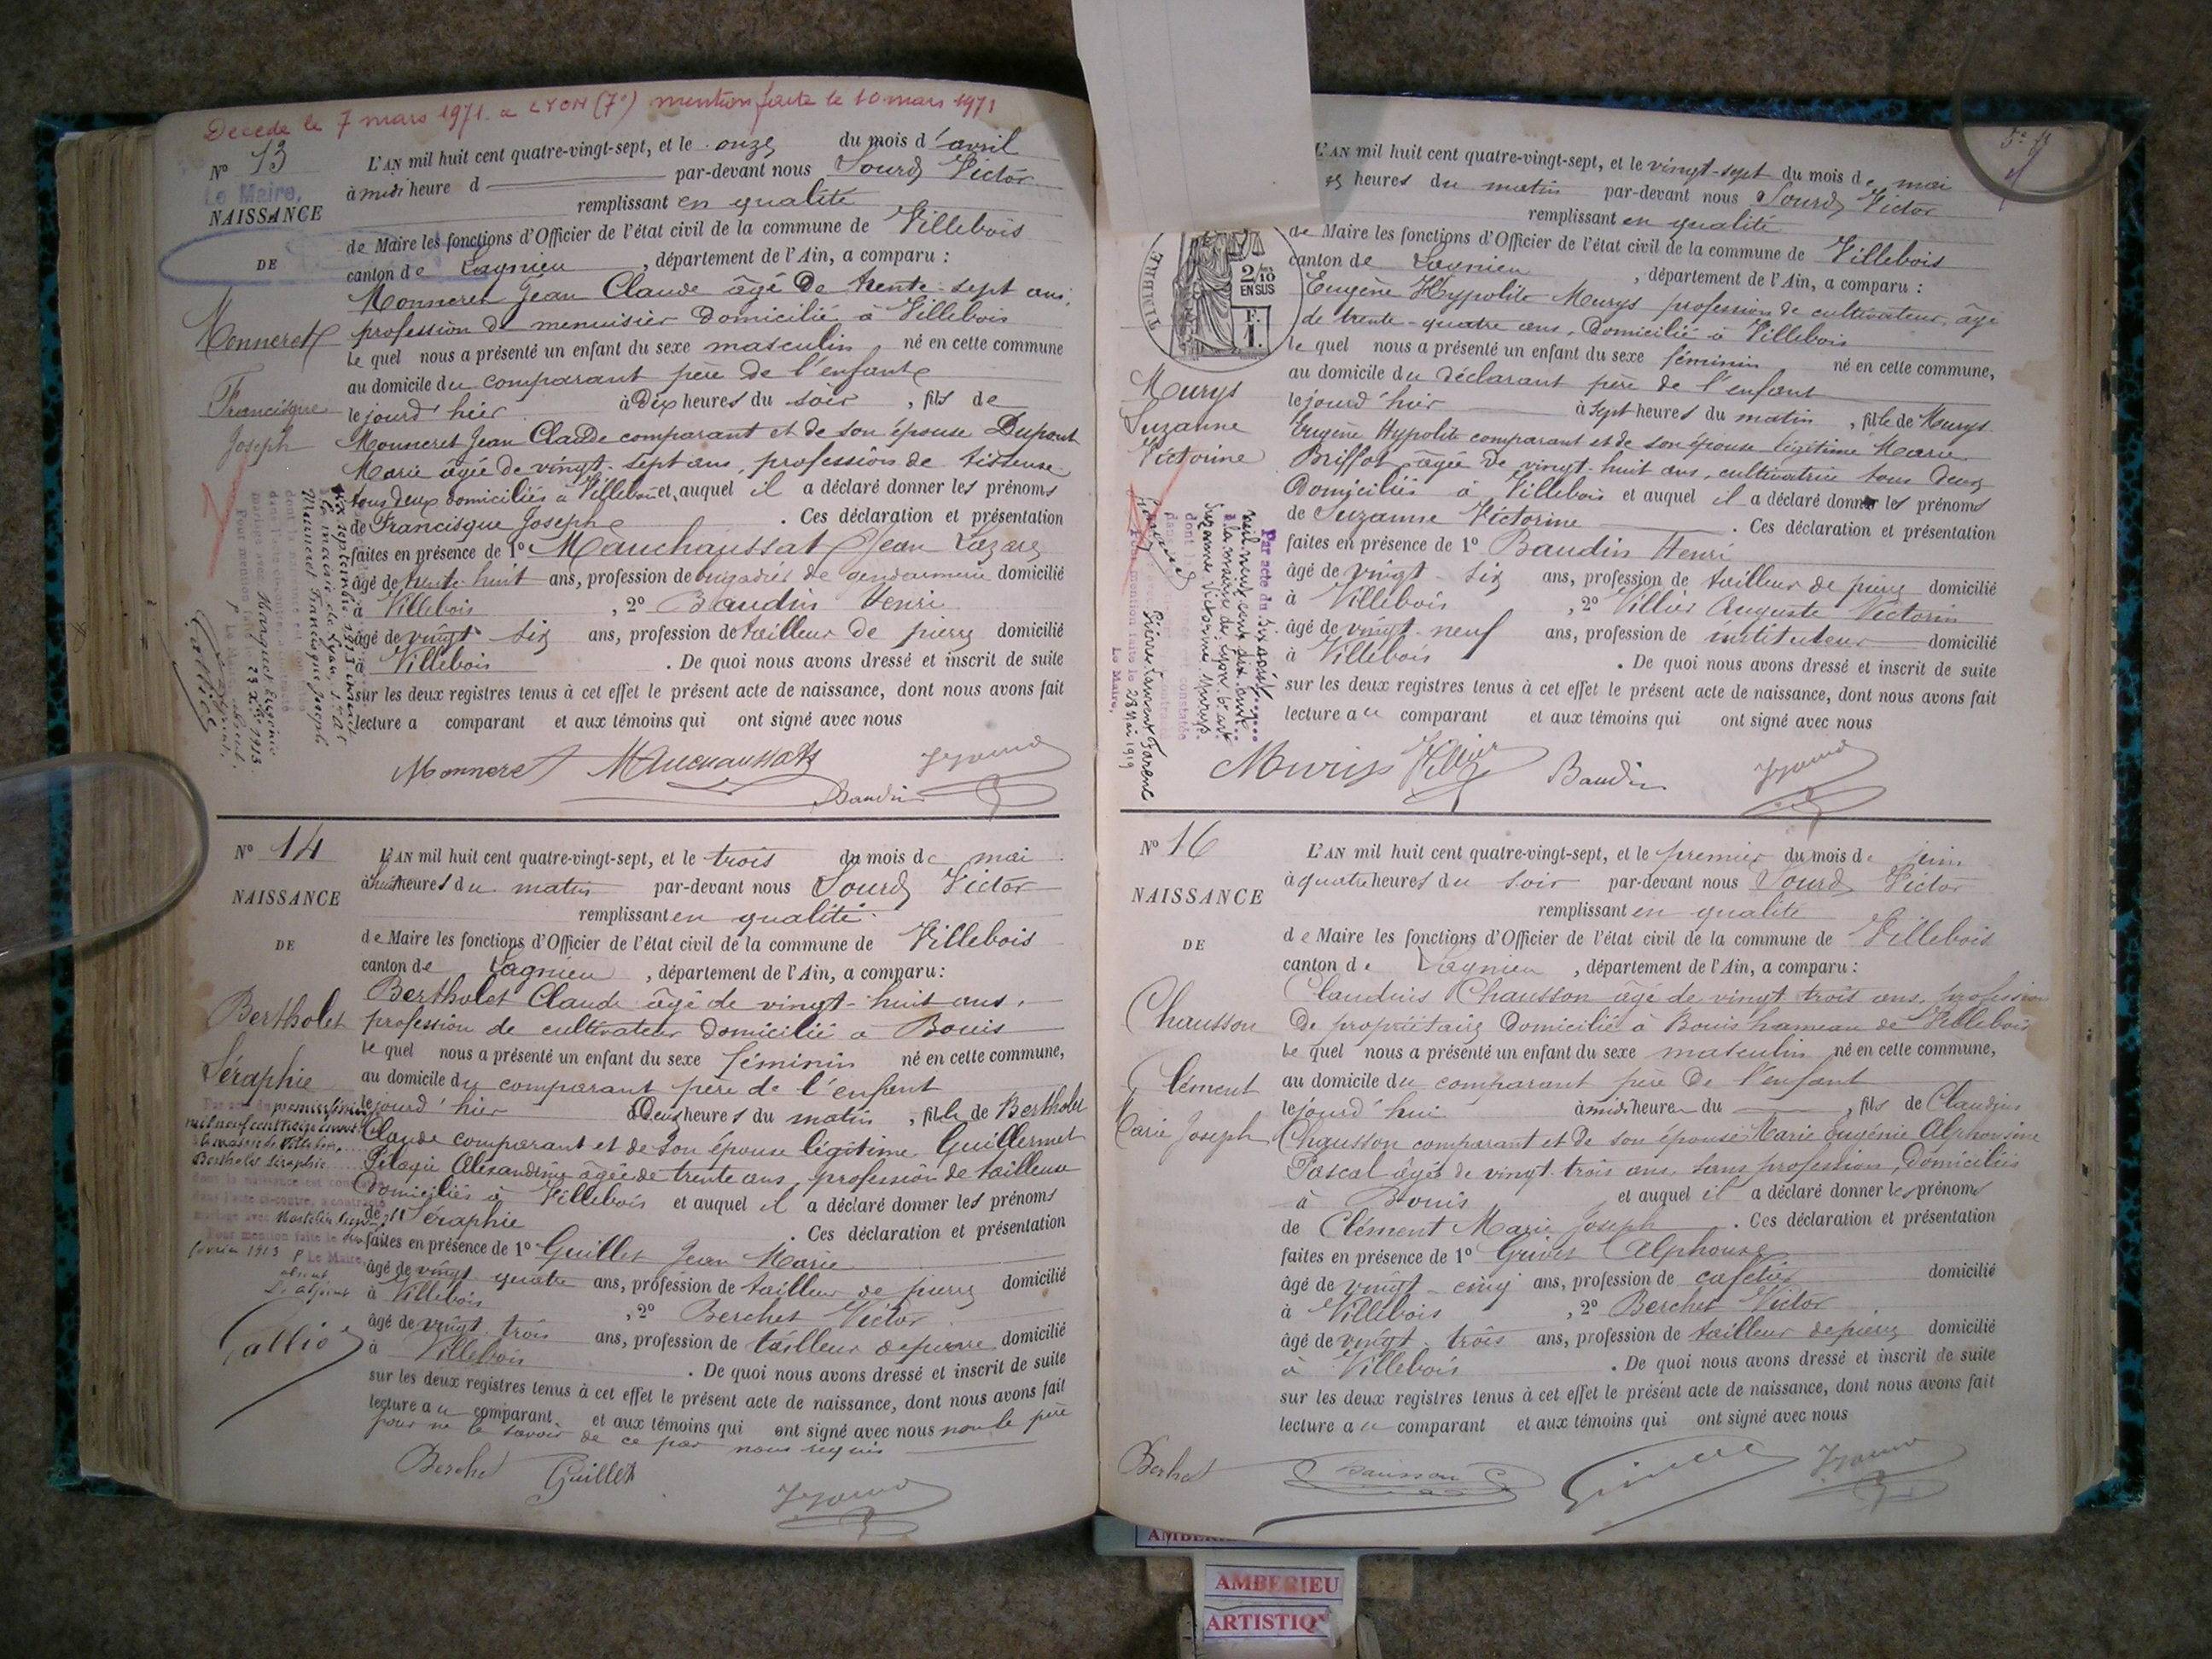 Décédé le 7 mars 1971 à LYON (7°) mention faite le 10 mars 1971
N° 13
Le Maire,
NAISSANCE
DE
Monneret
Francisque
Joseph
L'AN mil huit cent quatre-vingt-sept, et le onze du mois d'avril
à midi heure d par-devant nous Sourd Victor
remplissant en qualité
de Maire les fonctions d'Officier de l'état civil de la commune de Villebois
canton de Lagnieu, département de l'Ain, a comparu :
Monneret Jean Claude âgé de trente-sept ans,
profession de menuisier domicilié à Villebois
le quel nous a présenté un enfant du sexe masculin né en cette commune
au domicile du comparant père de l'enfant
le jourd'hier à dix heures du soir, fils de
Monneret Jean Claude comparant et de son épouse Dupont
Marie agée de vingt-sept ans, profession de tisseuse
tous deux domiciliés à Villebois et auquel il a déclaré donner les prénoms
de Francisque Joseph. Ces déclaration et présentation
faites en présence de 1° Mauchaussat Jean Lazare
âgé de trente-huit ans, profession de brigadier de gendarmerie domicilié
à Villebois, 2° Baudin Henri
âgé de vingt-six ans, profession de tailleur de pierre domicilié
à Villebois. De quoi nous avons dressé et inscrit de suite
sur les deux registres tenus à cet effet le présent acte de naissance, dont nous avons fait
lecture a comparant et aux témoins qui ont signé avec nous
Monneret Mauchaussat
Baudin
N° 14
NAISSANCE
DE
Bertholet
Séraphie
L'AN mil huit cent quatre-vingt-sept, et le trois du mois de mai
à huit heures du matin par-devant nous Sourd Victor
remplissant en qualité
de Maire les fonctions d'Officier de l'état civil de la commune de Villebois
canton de Lagnieu, département de l'Ain, a comparu :
Bertholet Claude âgé de vingt-huit ans,
profession de cultivateur domicilié à Bouis
le quel nous a présenté un enfant du sexe féminin né en cette commune,
au domicile du comparant père de l'enfant
le jourd'hier à deux heures du matin, fille de Bertholet
Claude comparant et de son épouse légitime Guillermet
Pélagie Alexandrine âgée de trente ans, profession de tailleuse
Domiciliés à Villebois et auquel il a déclaré donner les prénoms
de Séraphie. Ces déclaration et présentation
faites en présence de 1° Guillet Jean Marie
âgé de vingt-quatre ans, profession de tailleur de pierre domicilié
à Villebois, 2° Berchet Victor
âgé de vingt-trois ans, profession de tailleur de pierre domicilié
à Villebois. De quoi nous avons dressé et inscrit de suite
sur les deux registres tenus à cet effet le présent acte de naissance, dont nous avons fait
lecture au comparant et aux témoins qui ont signé avec nous non le père
pour ne le savoir de ce par nous requis
Berchet Guillet
TIMBRE
2/10
EN SUS
Murys
Suzanne
Victorine
L'AN mil huit cent quatre-vingt-sept, et le vingt-sept du mois de mai
heures du matin par-devant nous Sourd Victor
remplissant en qualité
de Maire les fonctions d'Officier de l'état civil de la commune de Villebois
canton de Lagnieu, département de l'Ain, a comparu :
Eugène Hypolite Murys profession de cultivateur, âgé
de trente-quatre ans, Domicilié à Villebois
le quel nous a présenté un enfant du sexe féminin né en cette commune,
au domicile du déclarant père de l'enfant
le jourd'hier à sept heures du matin, fille de Murys
Eugène Hypolite comparant et de son épouse légitime Marie
Briffot âgée de vingt-huit ans, cultivatrice tous deux
Domiciliés à Villebois et auquel il a déclaré donner les prénoms
de Suzanne Victorine. Ces déclaration et présentation
faites en présence de 1° Baudin Henri
âgé de vingt-six ans, profession de tailleur de pierre domicilié
à Villebois, 2° Villier Auguste Victorin
âgé de vingt-neuf ans, profession de instituteur domicilié
à Villebois. De quoi nous avons dressé et inscrit de suite
sur les deux registres tenus à cet effet le présent acte de naissance, dont nous avons fait
lecture au comparant et aux témoins qui ont signé avec nous
Murys Villier Baudin
N° 16
NAISSANCE
DE
Chausson
Clément
Marie Joseph
L'AN mil huit cent quatre-vingt-sept, et le premier du mois de juin
à quatre heures du soir par-devant nous Sourd Victor
remplissant en qualité
de Maire les fonctions d'Officier de l'état civil de la commune de Villebois
canton de Lagnieu, département de l'Ain, a comparu :
Claudius Chausson âgé de vingt trois ans, profession
De propriétaire Domicilié à Bouis hameau de Villebois
le quel nous a présenté un enfant du sexe masculin né en cette commune,
au domicile du comparant père de l'enfant
le jourd'hui à midi heure du, fils de Claudius
Chausson comparant et de son épouse Marie Eugénie Alphonsine
Pascal âgés de vingt-trois ans, sans profession, domiciliés
à Bouis et auquel il a déclaré donner les prénoms
de Clément Marie Joseph. Ces déclaration et présentation
faites en présence de 1° Alphonse
âgé de vingt-cinq ans, profession de cafetier domicilié
à Villebois, 2° Berchet Victor
âgé de vingt-trois ans, profession de tailleur de pierre domicilié
à Villebois. De quoi nous avons dressé et inscrit de suite
sur les deux registres tenus à cet effet le présent acte de naissance, dont nous avons fait
lecture au comparant et aux témoins qui ont signé avec nous
Berchet
AMBERIEU
ARTISTIQ